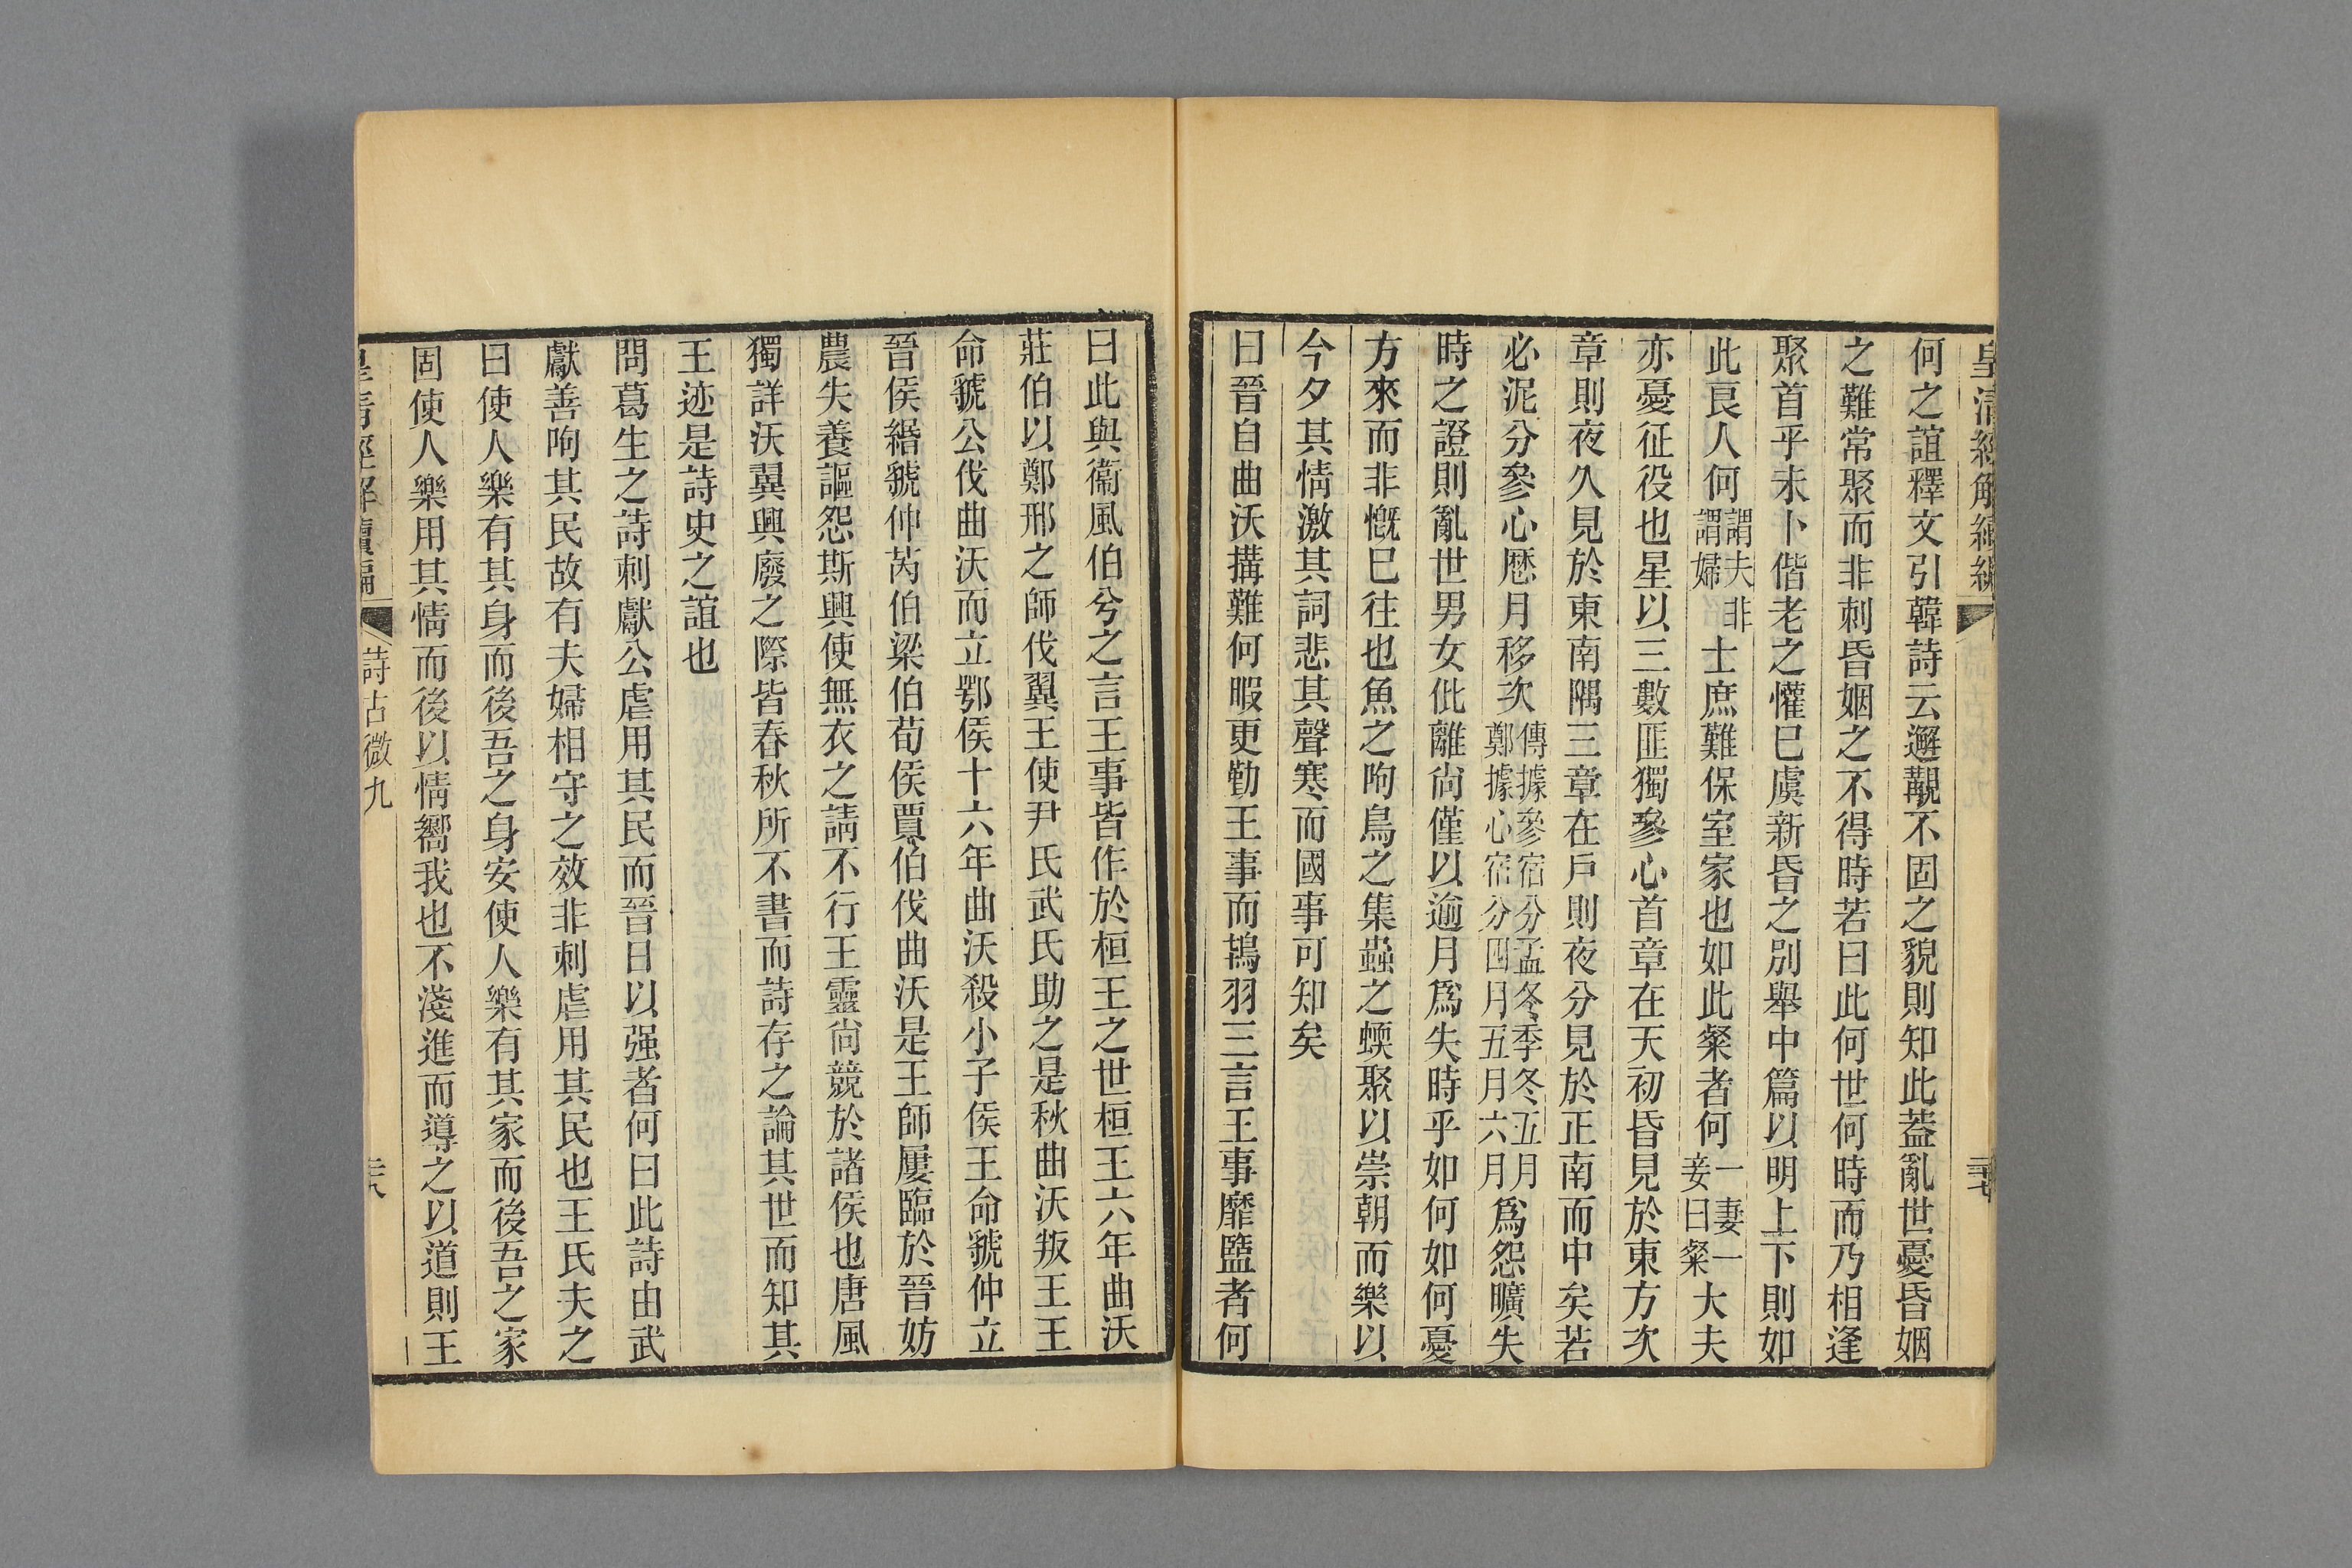 皇清經解續編
三七
何之誼釋文引韓詩云邂覯不固之貌則知此葢亂世憂昏姻
之難常聚而非刺昏姻之不得時若曰此何世何時而乃相逢
聚首乎未卜偕老之懽巳虞新昏之別舉中篇以明上下則如
此良人何謂夫非謂婦士庶難保室家也如此粲者何一妻一妾曰粲大夫
亦憂征役也星以三數匪獨參心首章在天初昏見於東方次
章則夜久見於東南隅三章在戶則夜分見於正南而中矣若
必泥分參心厯月移次傳據參宿分孟冬季冬五月鄭據心宿分四月五月六月爲怨曠失
時之證則亂世男女仳離尙僅以逾月爲失時乎如何如何憂
方來而非慨巳往也魚之呴鳥之集蟲之蝡聚以崇朝而樂以
今夕其情激其詞悲其聲寒而國事可知矣
曰晉自曲沃搆難何暇更勤王事而鴇羽三言王事靡盬者何
曰此與衞風伯兮之言王事皆作於桓王之世桓王六年曲沃
莊伯以鄭邢之師伐翼王使尹氏武氏助之是秋曲沃叛王王
命虢公伐曲沃而立鄂侯十六年曲沃殺小子侯王命虢仲立
晉侯緡虢仲芮伯梁伯荀侯賈伯伐曲沃是王師屢臨於晉妨
農失養謳怨斯興使無衣之請不行王靈尙競於諸侯也唐風
獨詳沃翼興廢之際皆春秋所不書而詩存之論其世而知其
王迹是詩史之誼也
問葛生之詩刺獻公虐用其民而晉日以强者何曰此詩由武
獻善呴其民故有夫婦相守之效非刺虐用其民也王氏夫之
曰使人樂有其身而後吾之身安使人樂有其家而後吾之家
固使人樂用其情而後以情嚮我也不淺進而導之以道則王
皇清經解續編
詩古微九
三八